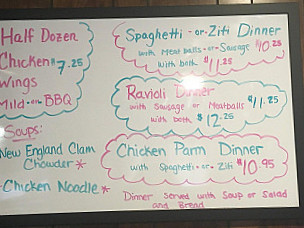 Half Dozen
Chicken $7.25
Wings
Mild -or- BBQ
Soups:
New England Clam
Chowder *
-Chicken Noodle *
Spaghetti -or- Ziti Dinner
with Meat balls -or- Sausage $10.25
with both $11.25
Ravioli Dinner
with Sausage or Meatballs $11.25
with both $12.25
Chicken Parm Dinner
with Spaghetti -or- Ziti $10.95
Dinner Served with Soup or Salad
and Bread